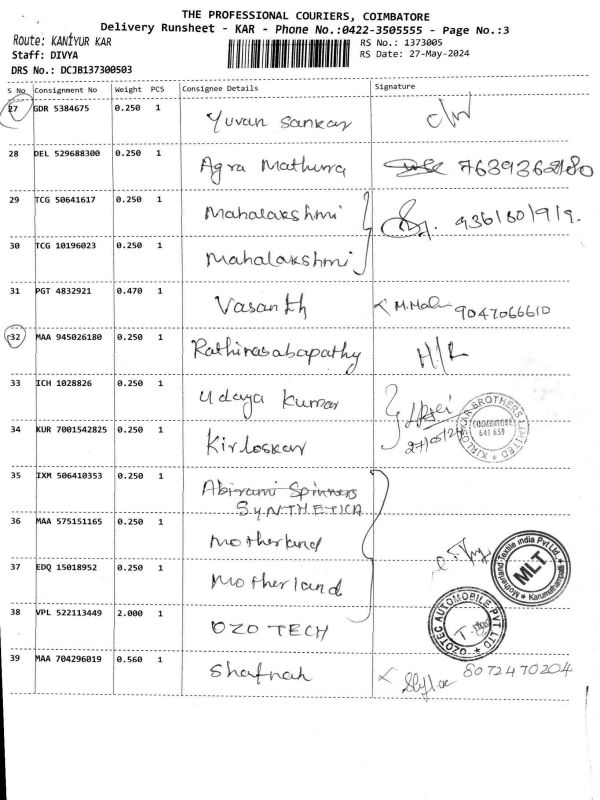 THE PROFESSIONAL COURIERS, COIMBATORE
Delivery Runsheet - KAR - Phone No.:0422-3505555 - Page No.:3
Route: KANIYUR KAR
RS No.: 1373005
Staff: DIVYA
RS Date: 27-May-2024
DRS No.: DCJB137300503
S No Consignment No Weight PCS Consignee Details Signature
27 GDR 5384675 0.250 1 Yuvan Sankar
28 DEL 529688300 0.250 1 Agra Mathura
29 TCG 50641617 0.250 1 Mahalakshmi
30 TCG 10196023 0.250 1 Mahalakshmi
31 PGT 4832921 0.470 1 Vasanth 9047066610
32 MAA 945026180 0.250 1 Rathinasabapathy
33 ICH 1028826 0.250 1 Udaya Kumar
27/05/24
KIRLOSKAR BROTHERS LIMITED
COIMBATORE
641 659
34 KUR 7001542825 0.250 1 Kirloskar
35 IXM 506410353 0.250 1 Abirami Spinners
SYNTHETICA
36 MAA 575151165 0.250 1 Motherland
Motherland Textile India Pvt Ltd.
MLT
Karumathampatti
37 EDQ 15018952 0.250 1 Motherland
38 VPL 522113449 2.000 1 OZO TECH
OZOTEC AUTOMOBILE PVT LTD
39 MAA 704296019 0.560 1 Shafnah 8072470204